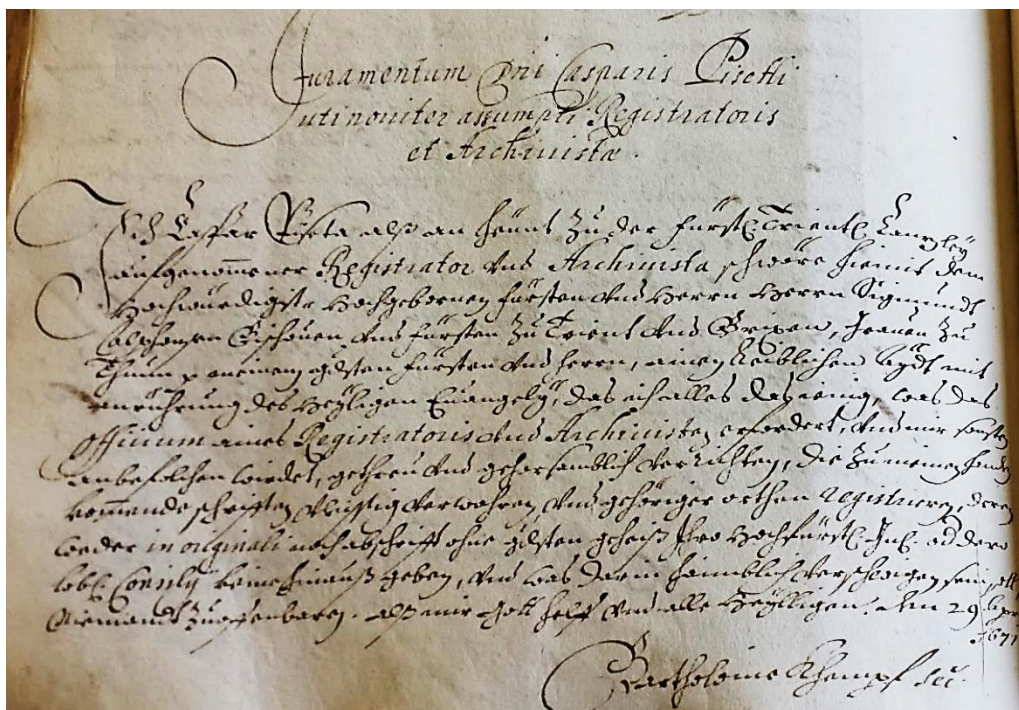 Juramentum Dni Casparis Pisetti
uti noviter assumpti Registratoris
et Archivistæ.
Ich Casßar Piseta alß an heünt zu der fürstl: Trientl: Canzley
aufgenommener Registrator vnd Archivista schwöre hiemit dem
Hochwürdigist: Hochgebornen fürsten vnd Herrn Herrn Sigmundt
Alphonsen Bischouen vnd fürsten zu Trient vnd Brixen, Grauen zu
Thunn p meinem gdsten fürsten vnd herrn, ainen Leiblichen Aydt mit
anrührung des Heyligen Euangely, das ich alles dasienig, was das
Officium aines Registratoris vnd Archivisten erfordert, vnd mir sonsten
anbefolchen wirdet, getreu vnd gehorsamblich verrichten, die zu meinen handen
kommende schrifften vleissig verwahren, vnd gehöriger orthen Registrieren, deren
weder in originali noch abschrifft ohne gdsten geheiß Ihro Hochfürstl: Gnl: od dero
lobl: Consily keine hinauß geben, vnd was darin haimblich verschlagen sein soll,
Niemandt zuoffenbaren. Alß mir Gott helff vnd alle Heylligen. den 29
1671
Bartholome Khempf sec: